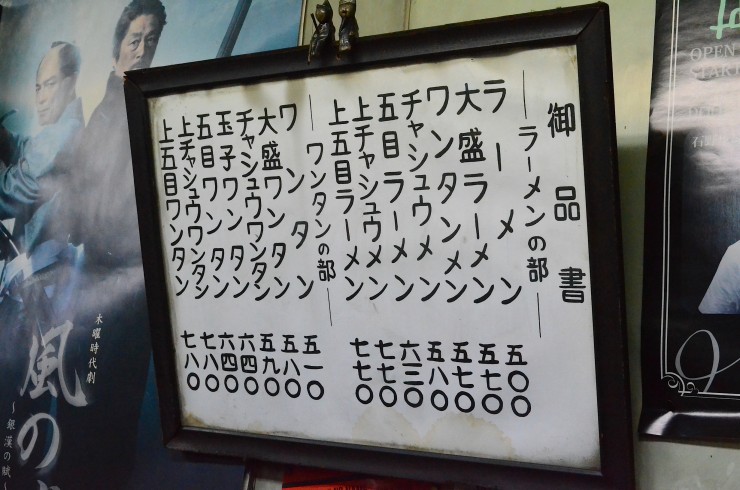 御品書
―ラーメンの部―
ラーメン 五〇〇
大盛ラーメン 五七〇
ワンタンメン 五七〇
チャシュウメン 五八〇
五目ラーメン 六三〇
上チャシュウメン 七七〇
上五目ラーメン 七七〇
―ワンタンの部―
ワンタン 五一〇
大盛ワンタン 五八〇
チャシュウワンタン 五九〇
玉子ワンタン 六四〇
五目ワンタン 六四〇
上チャシュウワンタン 七八〇
上五目ワンタン 七八〇
木曜時代劇
風の
～銀漢の賦～
OPEN
START